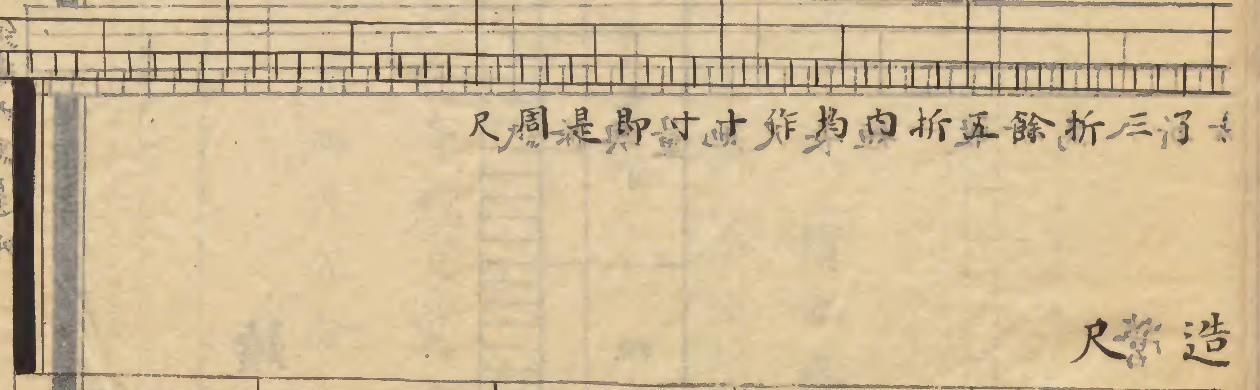 了三折餘五折内均作十寸即是周尺
造尺